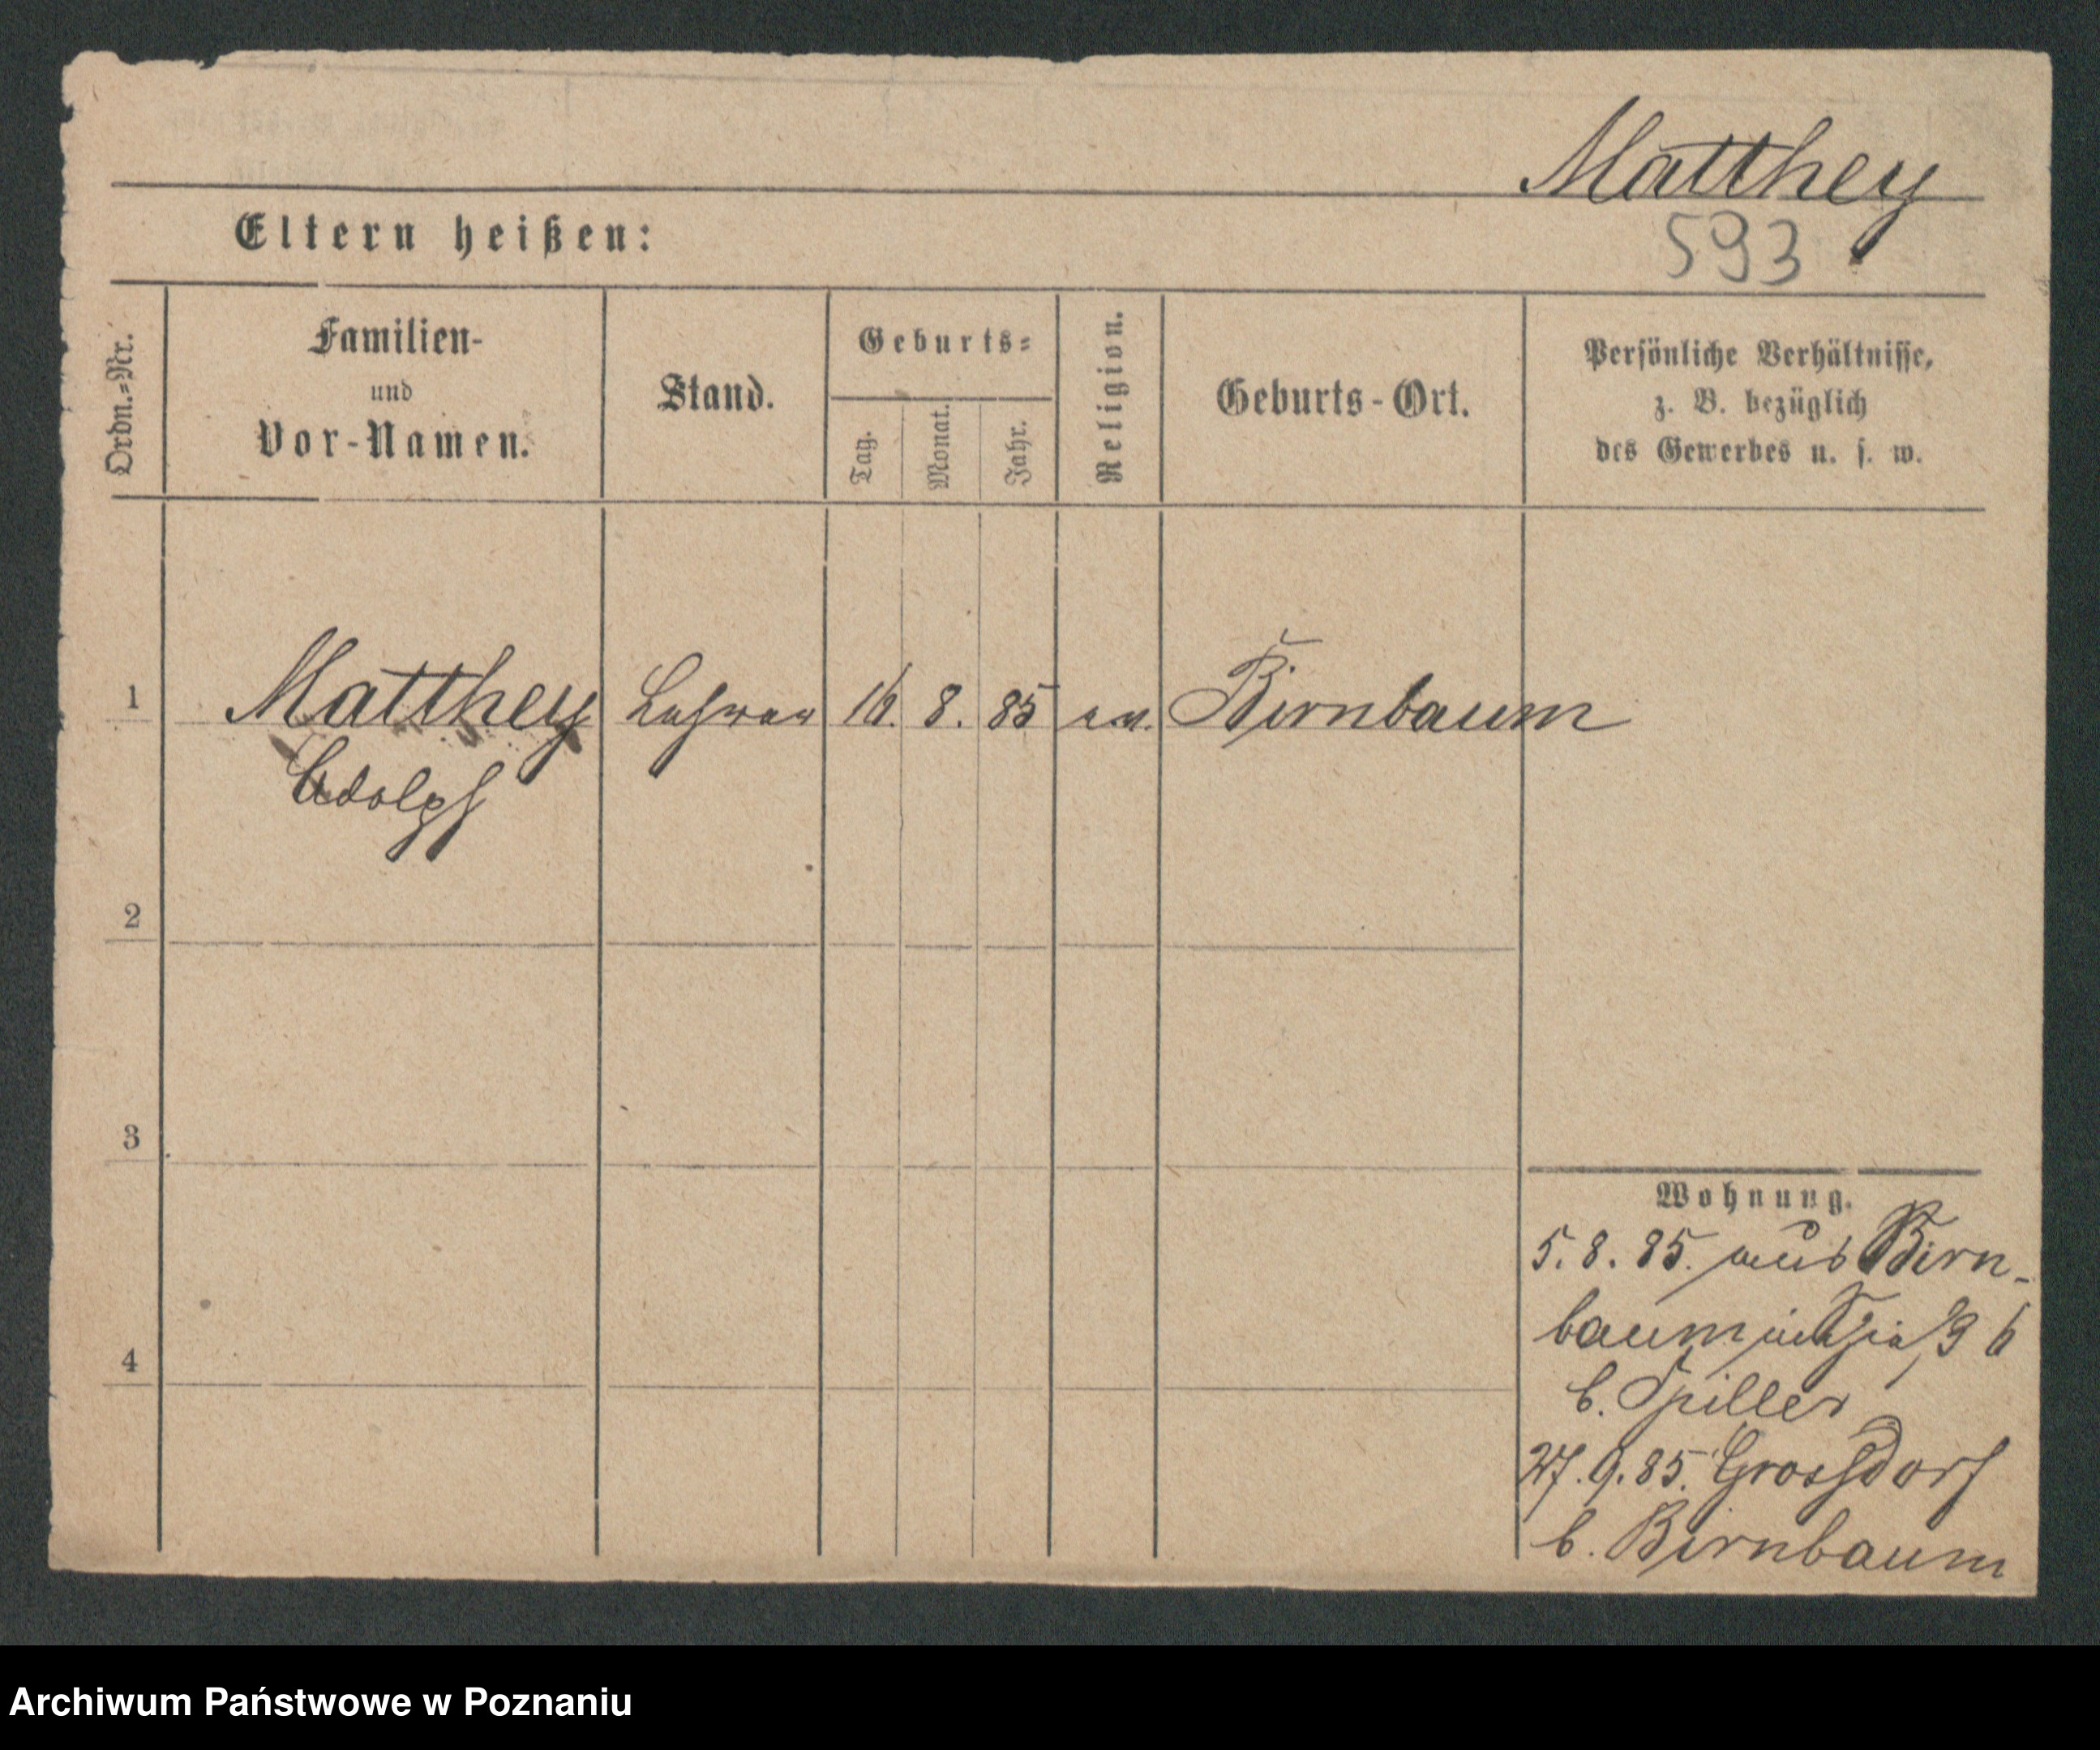 Matthey
593
Eltern heißen:
Ordn.-Nr.
Familien-
und
Vor-Namen.
Stand.
Geburts-
Tag.
Monat.
Jahr.
Religion.
Geburts-Ort.
Persönliche Verhältnisse,
z. B. bezüglich
des Gewerbes u. s. w.
1 Matthey 16. 8. 85 ev. Birnbaum
Adolph
2
3
4
Wohnung.
5. 8. 85. aus Birn-
baum
b. Spiller
27. 9. 85. Grossdorf
b. Birnbaum
Archiwum Państwowe w Poznaniu